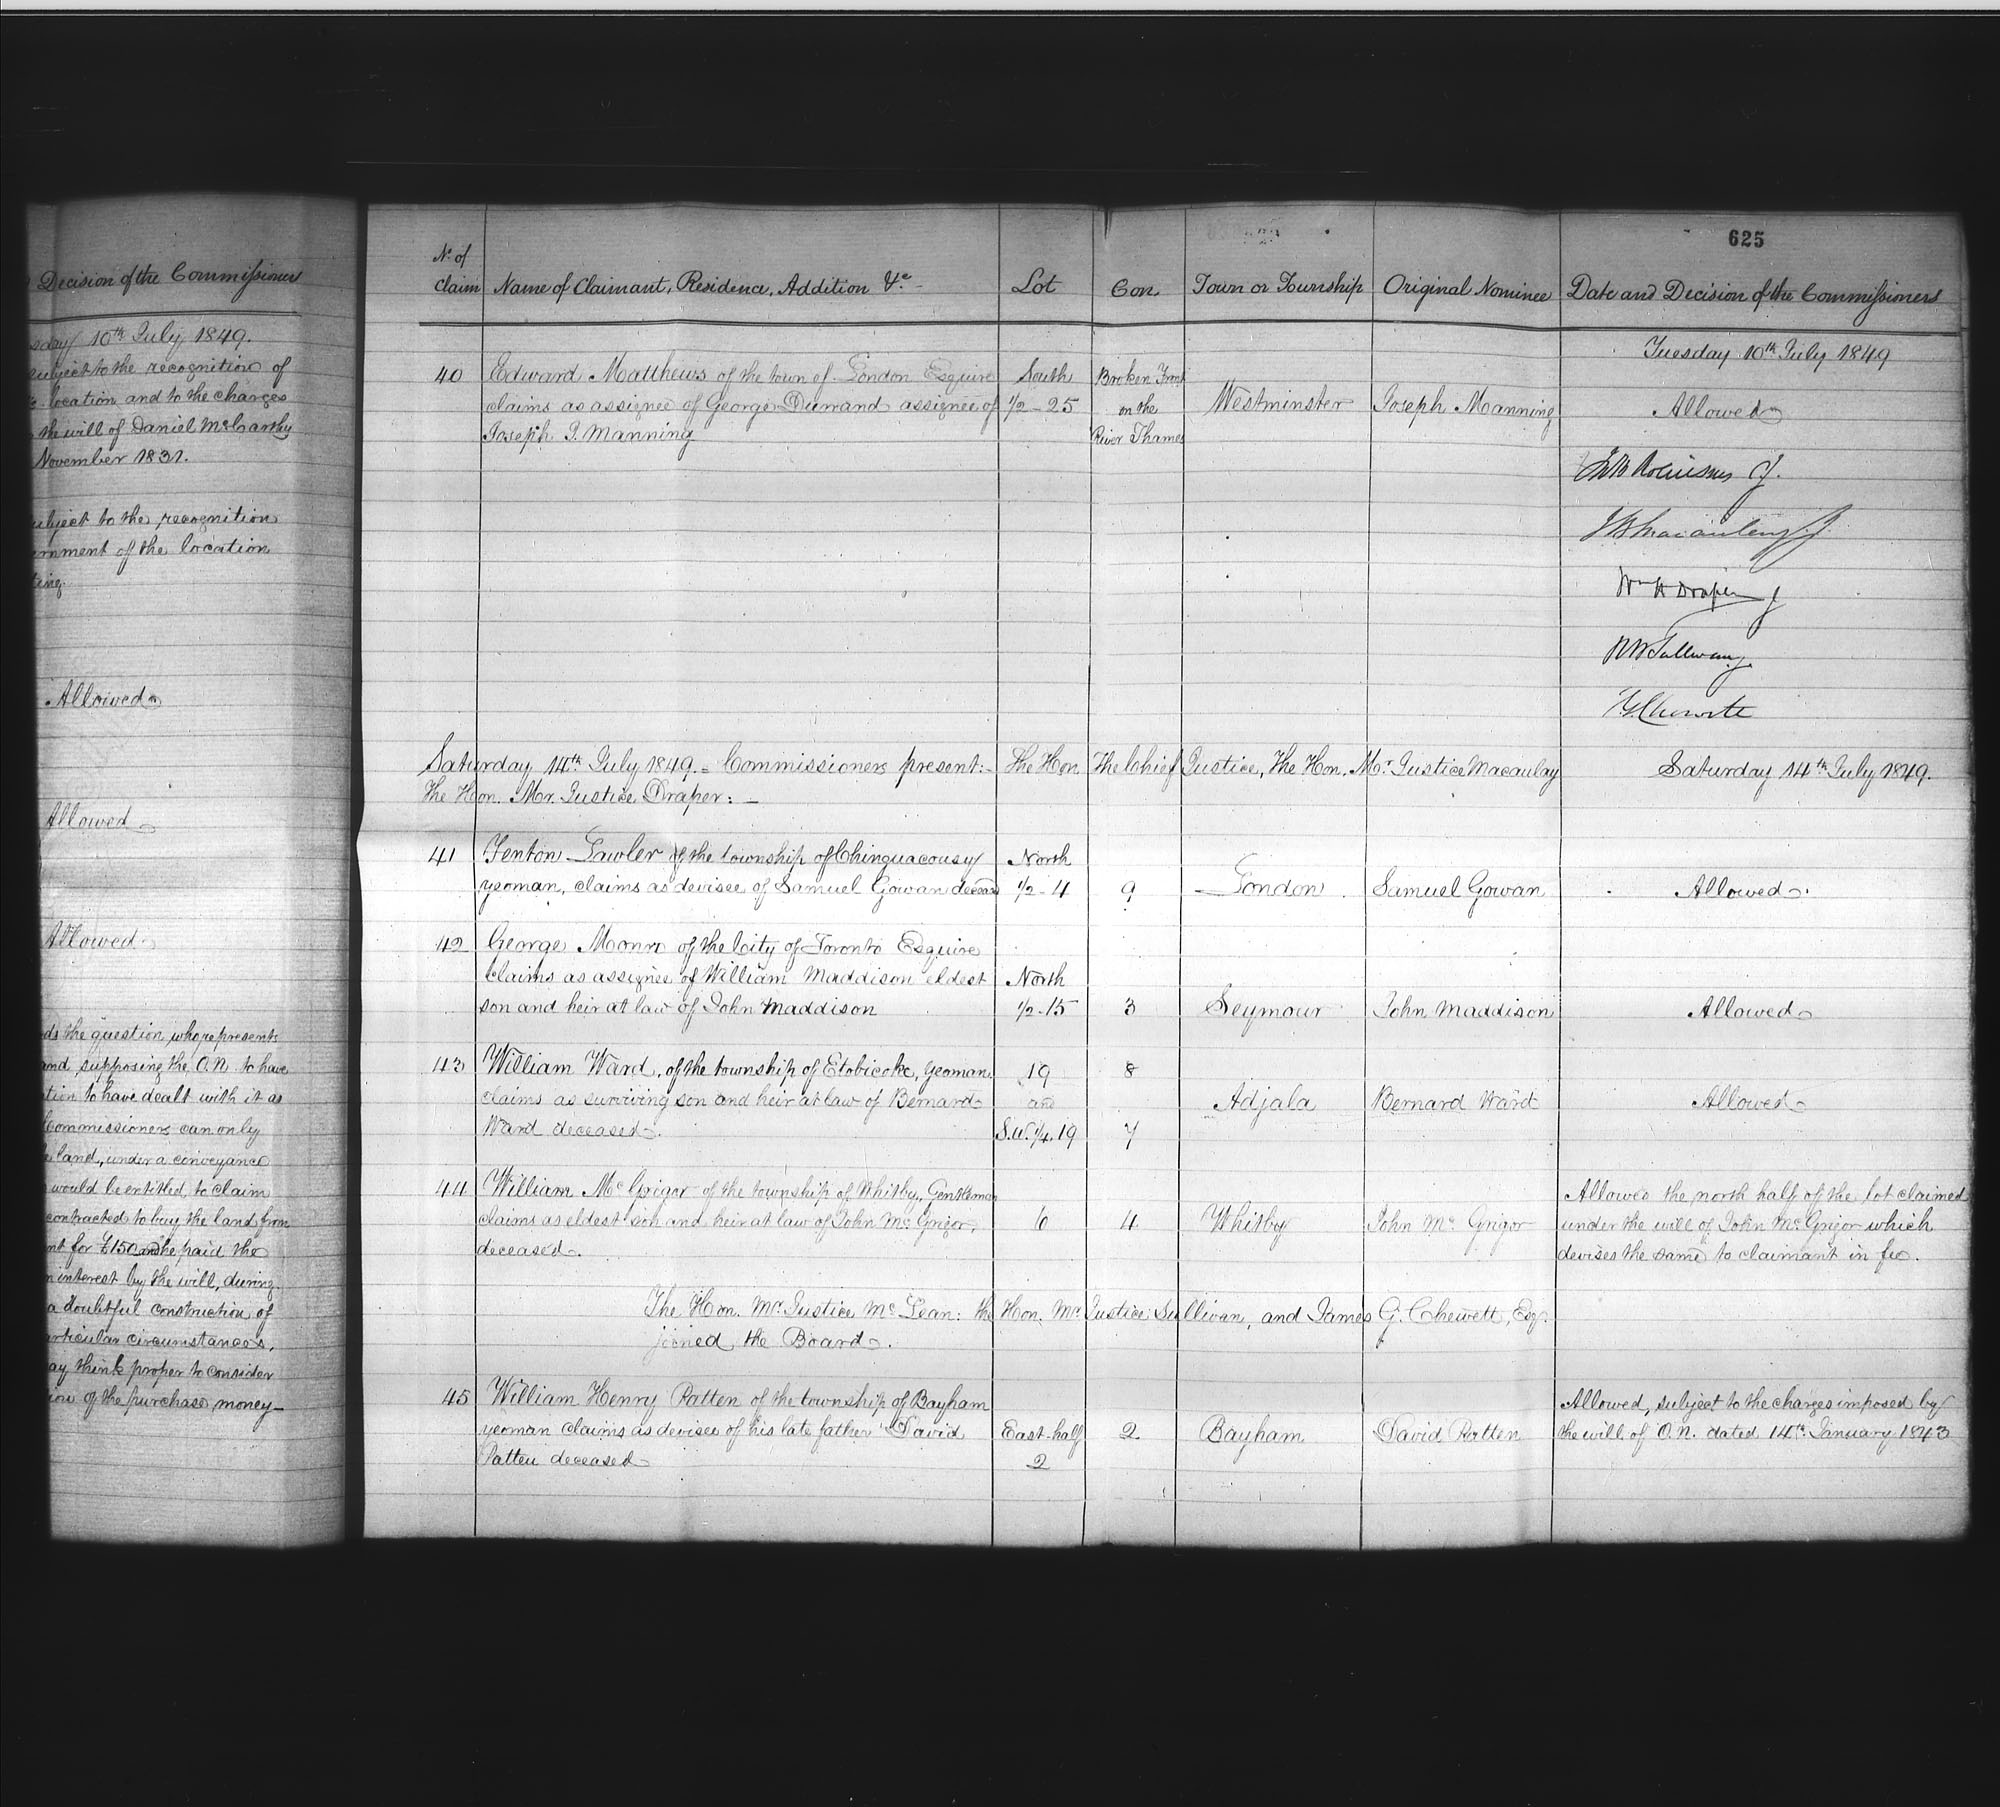 Decision of the Commissioners
10th July, 1849.
subject to the recognition of
location and to the charges
the will of Daniel McCarthy
November 1831.
subject to the recognition
of the location
Allowed
Allowed
Allowed
the question, who represents
and, supposing the O.N. to have
to have dealt with it as
Commissioners can only
land, under a conveyance
would be entitled, to claim
contracted to buy the land from
for £150 and he paid the
interest by the will, during
a doubtful construction of
particular circumstances,
may think proper to consider
of the purchase money
625
No. of
Claim Name of Claimant, Residence, Addition &c. Lot Con. Town or Township Original Nominee Date and Decision of the Commissioners
Tuesday 10th July 1849
40 Edward Matthews of the town of London Esquire South Broken Front
claims as assignee of George Durrand assignee of 1/2 - 25 on the Westminster Joseph Manning Allowed
Joseph P. Manning River Thames
JnB Robinson CJ.
JB Macaulay J.
Wm H Draper J
R B Sullivan J.
J G Chewett
Saturday 14th July 1849. = Commissioners present:- The Hon. The Chief Justice, The Hon. Mr. Justice Macaulay Saturday 14th July 1849.
The Hon. Mr. Justice Draper: -
41 Fenton Lawler of the township of Chinguacousy North
yeoman, claims as devisee of Samuel Gowan deceased 1/2 - 4 9 London Samuel Gowan Allowed
42 George Monro of the City of Toronto Esquire
claims as assignee of William Maddison eldest North
son and heir at law of John Maddison 1/2 - 15 3 Seymour John Maddison Allowed
43 William Ward, of the township of Etobicoke, yeoman. 19 8
claims as surviving son and heir at law of Bernard and Adjala Bernard Ward Allowed
Ward deceased. S.W. 1/4. 19 7
44 William McGrigor of the township of Whitby, Gentleman Allowed the north half of the lot claimed
claims as eldest son and heir at law of John McGrigor, 6 4 Whitby John McGrigor under the will of John McGrigor which
deceased. devises the same to claimant in fee.
The Hon. Mr. Justice McLean: the Hon. Mr. Justice Sullivan, and James G. Chewett, Esqr.
joined the Board.
45 William Henry Patten of the township of Bayham Allowed, subject to the charges imposed by
yeoman claims as devisee of his late father David East half 2 Bayham David Patten the will of O.N. dated 14th January 1843
Patten deceased 2